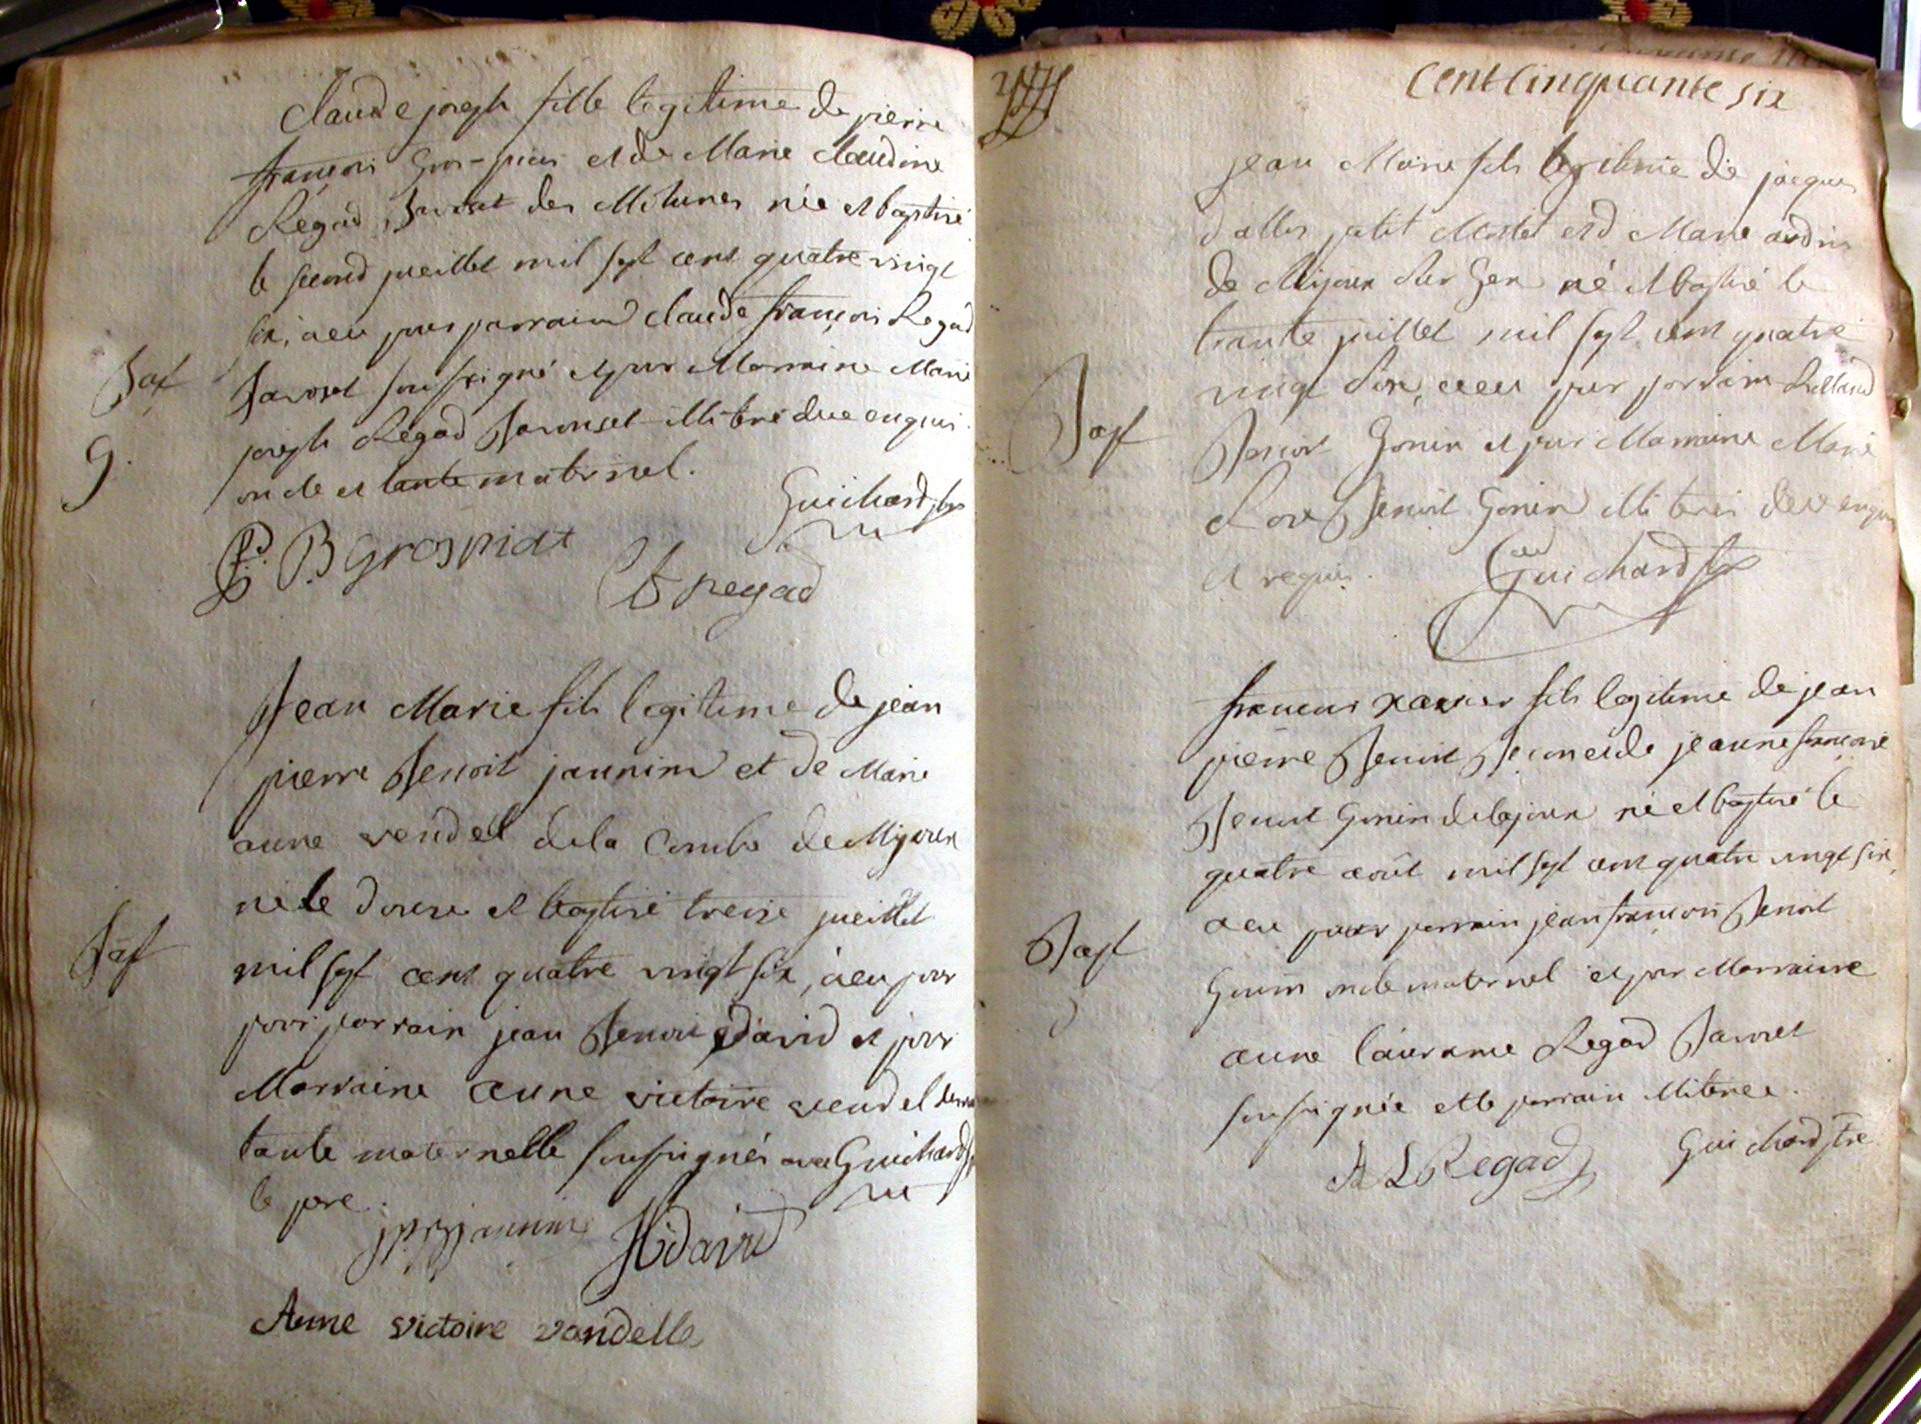 Claude joseph fille legitime de pierre
françois Gros-piat et de Marie Claudine
Regad Javost des Mitunes née et baptisé
le second jueillet mil sept cent quatre vingt
six, a eu pour parrain Claude françois Regad
Javoset soussigné et pour Marraine Marie
joseph Regad Illitérédue enquis
oncle et tante maternel.
Guichard ptre
Bapt
9.
P. B Grospiat
regad
Jean Marie fils legitime de jean
pierre Benoit jaunin et de Marie
anne vendel dela Combe de Mijoux
né le douze et baptisé treize jueillet
mil sept cent quatre vingt six, a eu pour
pour parrain jean Benoit David et pour
Marraine anne victoire vendel
tante maternelle soussignés avec Guichard
le pere.
Bapt
jp Bjaunin
JB david
Anne victoire vandelle
Cent Cinquante six
jean Marie fils legitime de jacques
dallos petit Mostet et d Marie
de Mijoux sur Gex né et baptisé le
trante juillet mil sept cent quatre
vingt six, a eu pour parrain Rolland
Benoit Gonin et pour Marraine Marie
Rose Benoit Gonin Illiterés de ce enquis
et requis.
Bapt
Guichard ptre
francois xavier fils legitime de jean
pierre Benoit et de jeanne francoise
Benoit Gonin de lajoux né et baptisé le
quatre août mil sept cent quatre vingt six,
a eu pour parrain jean francois Benoit
Gonin oncle maternel et pour Marraine
anne laurance Regad Javoset
soussignée et le parrain Illiteré.
Bapt
A L Regad
Guichard ptre